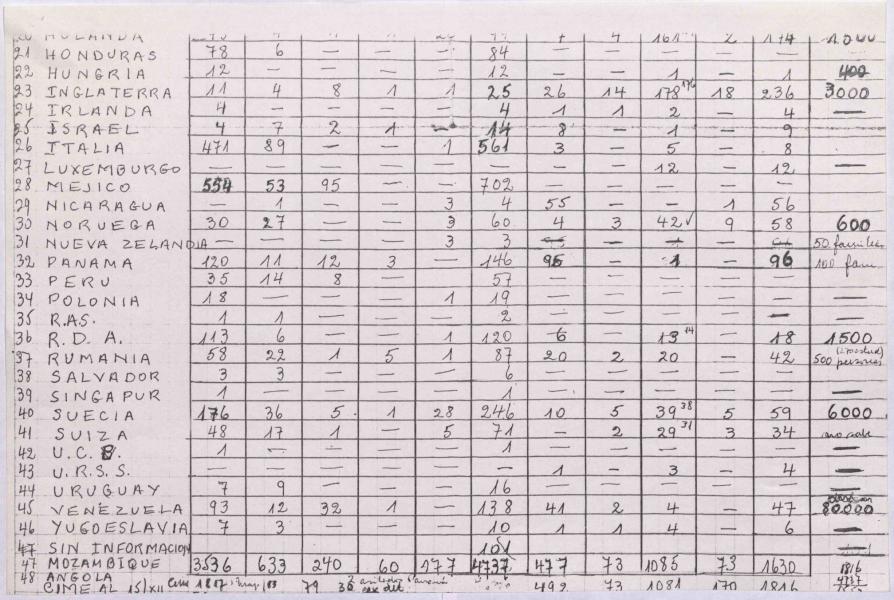 20 HOLANDA 4 161 2 174
21 HONDURAS 78 6 — — — 84 — — — — —
22 HUNGRIA 12 — — — — 12 — — 1 — 1 400
23 INGLATERRA 11 4 8 1 1 25 26 14 178 176 18 236 3000
24 IRLANDA 4 — — — — 4 1 1 2 — 4 —
25 ISRAEL 4 7 2 1 — 14 8 — 1 — 9
26 ITALIA 471 89 — — 1 561 3 — 5 — 8
27 LUXEMBURGO — — — — — — — — 12 — 12 —
28 MEJICO 554 53 95 — — 702 — — — — —
29 NICARAGUA — 1 — — 3 4 55 — — 1 56
30 NORUEGA 30 27 — — 3 60 4 3 42✓ 9 58 600
31 NUEVA ZELANDIA — — — — 3 3 — — — 50 familes
32 PANAMA 120 11 12 3 — 146 95 — 1 — 96 100 fam
33 PERU 35 14 8 57 — — — — —
34 POLONIA 18 — — — 1 19 — — — — — —
35 R.A.S. 1 1 — — — 2 — — — — — —
36 R. D. A. 113 6 — — 1 120 6 — 13 14 — 18 1500
37 RUMANIA 58 22 1 5 1 87 20 2 20 — 42 500 personas
38 SALVADOR 3 3 — — — 6 — — — — —
39 SINGAPUR 1 — — — — 1 — — — — — —
40 SUECIA 176 36 5 1 28 246 10 5 39 38 5 59 6000
41 SUIZA 48 17 1 — 5 71 — 2 29 31 3 34 no sabe
42 U.C. 1 — — — — 1 — — — — — —
43 U.R.S.S. — — — — — — 1 — 3 — 4 —
44 URUGUAY 7 9 — — — 16 — — — — — —
45 VENEZUELA 93 12 32 1 — 138 41 2 4 — 47 80.000
46 YUGOESLAVIA 7 3 — — — 10 1 1 4 — 6 —
47 SIN INFORMACION 101 —
47 MOZAMBIQUE 3536 633 240 60 177 4737 477 73 1085 73 1630 1816
48 ANGOLA 4737
CIME AL 15/XII Cime 1817 79 36 492 73 1081 170 1816